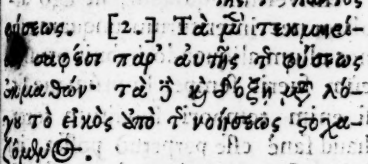 φύσεως. [2.] Τὰ μὲν τεκμηρί-
σαφέσι παρ' αυτῆς τῆς φύσεως
μαθών· τὰ δὲ καὶ δόξῃ μετὰ λό-
γου τὸ εἰκὸς ἀπὸ τῆς νοήσεως ςοχα-
ζόμενος.